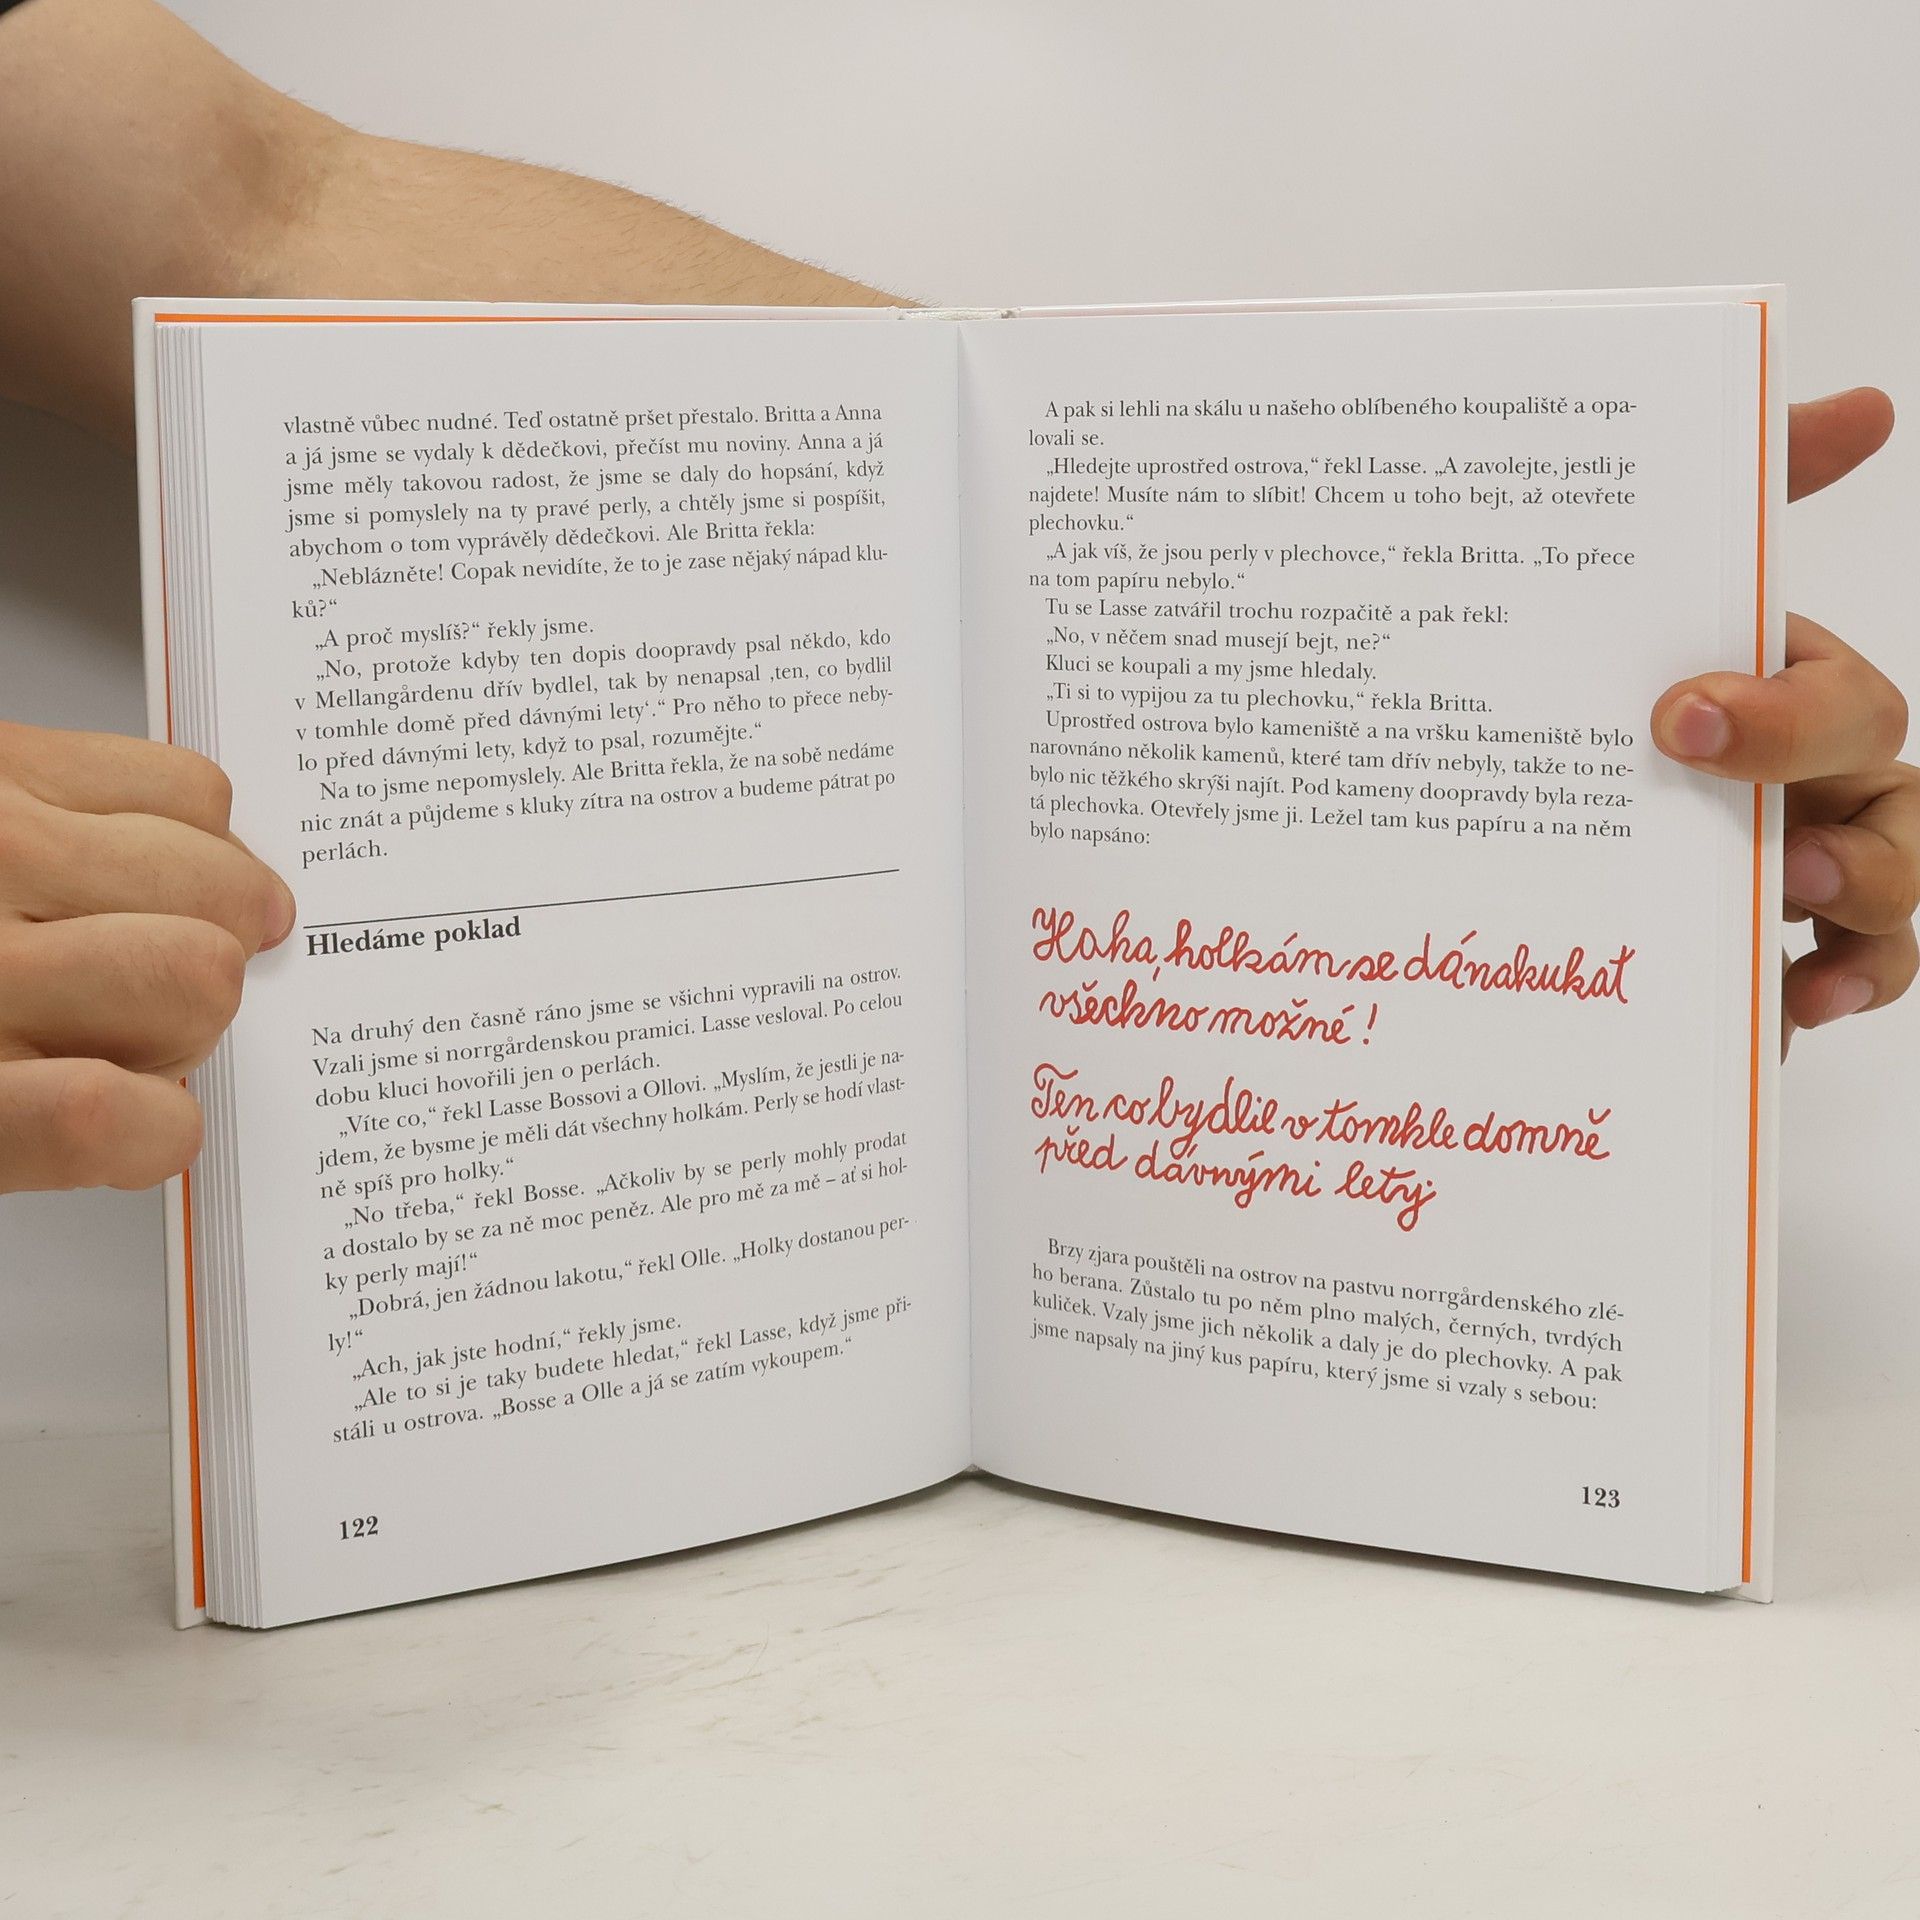 vlastně vůbec nudné. Teď ostatně pršet přestalo. Britta a Anna
a já jsme se vydaly k dědečkovi, přečíst mu noviny. Anna a já
jsme měly takovou radost, že jsme se daly do hopsání, když
jsme si pomyslely na ty pravé perly, a chtěly jsme si pospíšit,
abychom o tom vyprávěly dědečkovi. Ale Britta řekla:
„Neblázněte! Copak nevidíte, že to je zase nějaký nápad klu-
ků?“
„A proč myslíš?“ řekly jsme.
„No, protože kdyby ten dopis doopravdy psal někdo, kdo
v Mellangårdenu dřív bydlel, tak by nenapsal ‚ten, co bydlil
v tomhle domě před dávnými lety‘.“ Pro něho to přece neby-
lo před dávnými lety, když to psal, rozumějte.“
Na to jsme nepomyslely. Ale Britta řekla, že na sobě nedáme
nic znát a půjdeme s kluky zítra na ostrov a budeme pátrat po
perlách.
Hledáme poklad
Na druhý den časně ráno jsme se všichni vypravili na ostrov.
Vzali jsme si norrgårdenskou pramici. Lasse vesloval. Po celou
dobu kluci hovořili jen o perlách.
„Víte co,“ řekl Lasse Bossovi a Ollovi. „Myslím, že jestli je na-
jdem, že bysme je měli dát všechny holkám. Perly se hodí vlast-
ně spíš pro holky.“
„No třeba,“ řekl Bosse. „Ačkoliv by se perly mohly prodat
a dostalo by se za ně moc peněz. Ale pro mě za mě – ať si hol-
ky perly mají!“
„Dobrá, jen žádnou lakotu,“ řekl Olle. „Holky dostanou per-
ly!“
„Ach, jak jste hodní,“ řekly jsme.
„Ale to si je taky budete hledat,“ řekl Lasse, když jsme při-
stáli u ostrova. „Bosse a Olle a já se zatím vykoupem.“
122
A pak si lehli na skálu u našeho oblíbeného koupaliště a opa-
lovali se.
„Hledejte uprostřed ostrova,“ řekl Lasse. „A zavolejte, jestli je
najdete! Musíte nám to slíbit! Chcem u toho bejt, až otevřete
plechovku.“
„A jak víš, že jsou perly v plechovce,“ řekla Britta. „To přece
na tom papíru nebylo.“
Tu se Lasse zatvářil trochu rozpačitě a pak řekl:
„No, v něčem snad musejí bejt, ne?“
Kluci se koupali a my jsme hledaly.
„Ti si to vypijou za tu plechovku,“ řekla Britta.
Uprostřed ostrova bylo kameniště a na vršku kameniště bylo
narovnáno několik kamenů, které tam dřív nebyly, takže to ne-
bylo nic těžkého skrýši najít. Pod kameny doopravdy byla reza-
tá plechovka. Otevřely jsme ji. Ležel tam kus papíru a na něm
bylo napsáno:
Haha, holkám se dá nakukat
všeckno možné!
Ten co bydlil v tomhle domně
před dávnými lety
Brzy zjara pouštěli na ostrov na pastvu norrgårdenského zlé-
ho berana. Zůstalo tu po něm plno malých, černých, tvrdých
kuliček. Vzaly jsme jich několik a daly je do plechovky. A pak
jsme napsaly na jiný kus papíru, který jsme si vzaly s sebou:
123